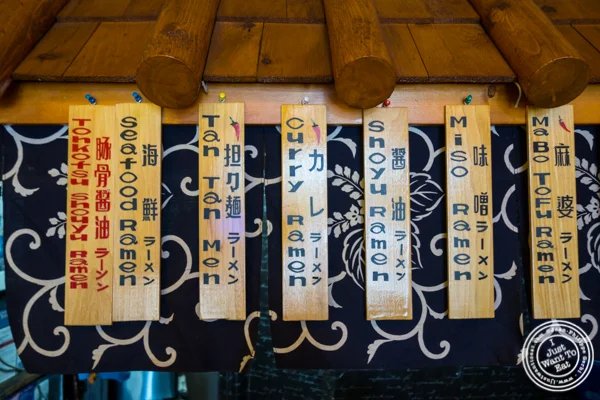 Tonkotsu Shoyu Ramen
豚骨醤油 ラーメン
Seafood Ramen
海鮮 ラーメン
Tan Tan Men
担々麺 ラーメン
Curry Ramen
カレー ラーメン
Shoyu Ramen
醤油 ラーメン
Miso Ramen
味噌 ラーメン
MaBo Tofu Ramen
麻婆 ラーメン
I
Just
Want To
Eat